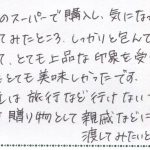 のスーパーで購入し、気になっ
てみたところ、しっかりと包んで
て、とても上品な印象を受
もとても美味しかったです。
は旅行など行けない
贈り物として親戚などに
渡してみたいと